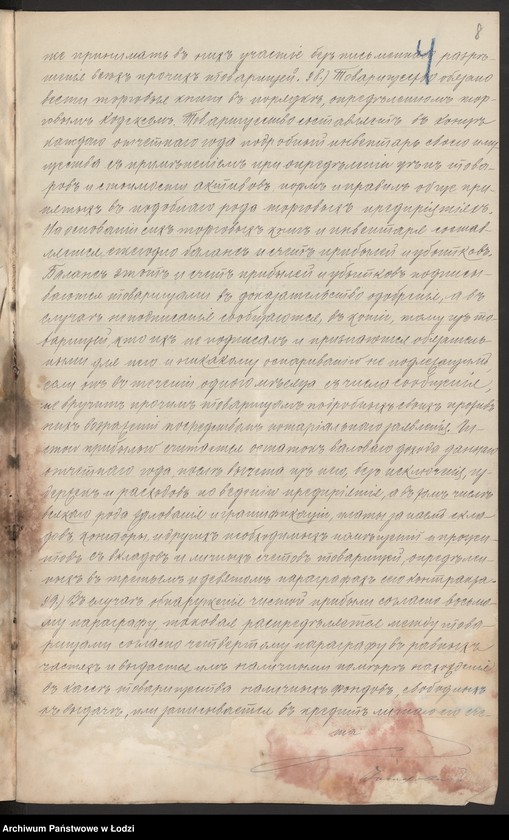 8
4
же принимать въ нихъ участіе безъ письменнаго разрѣ-
шенія всѣхъ прочихъ товарищей. §8.) Товарищество обязано
вести торговыя книги въ порядкѣ, опредѣленномъ тор-
говымъ кодексомъ. Товарищество составляетъ въ концѣ
каждаго отчетнаго года подробный инвентарь своего иму-
щества съ примѣненіемъ при опредѣленіи цѣнъ това-
ровъ и стоимости активовъ нормъ и правилъ обще при-
нятыхъ въ подобнаго рода торговыхъ предпріятіяхъ.
На основаніи сихъ торговыхъ книгъ и инвентаря состав-
ляется ежегодно балансъ и счетъ прибылей и убытковъ.
Балансъ этотъ и счетъ прибылей и убытковъ подписы-
ваются товарищами въ доказательство одобренія, а въ
случаѣ неподписанія сообщаются, въ копіи, тому изъ то-
варищей, кто ихъ не подписалъ и признаются обязатель-
ными для него и никакому оспариванію не подлежащими
если онъ въ теченіи одного мѣсяца съ числа сообщенія,
не вручитъ прочимъ товарищамъ подробныхъ своихъ противъ
нихъ возраженій посредствомъ нотаріальнаго заявленія. Чи-
стой прибылью считается остатокъ валоваго дохода даннаго
отчетнаго года послѣ вычета изъ него, безъ исключенія, из-
держекъ и расходовъ по веденію предпріятія, а въ томъ числѣ
всякаго рода жалованія и гратификацій, платы за наемъ скла-
довъ, конторы и другихъ необходимыхъ помѣщеній и процен-
товъ съ вкладовъ и личныхъ счетовъ товарищей, опредѣлен-
ныхъ въ третьемъ и девятомъ параграфахъ сего контракта.
§9.) Въ случаѣ обнаруженія чистой прибыли согласно восьмо-
му параграфу таковая распредѣляется между това-
рищами согласно четвертому параграфу въ равныхъ
частяхъ и выдается имъ наличными по мѣрѣ нахожденія
въ кассѣ товарищества наличныхъ фондовъ, свободныхъ
къ выдачѣ, или записывается въ кредитъ личнаго его сче-
та
Archiwum Państwowe w Łodzi